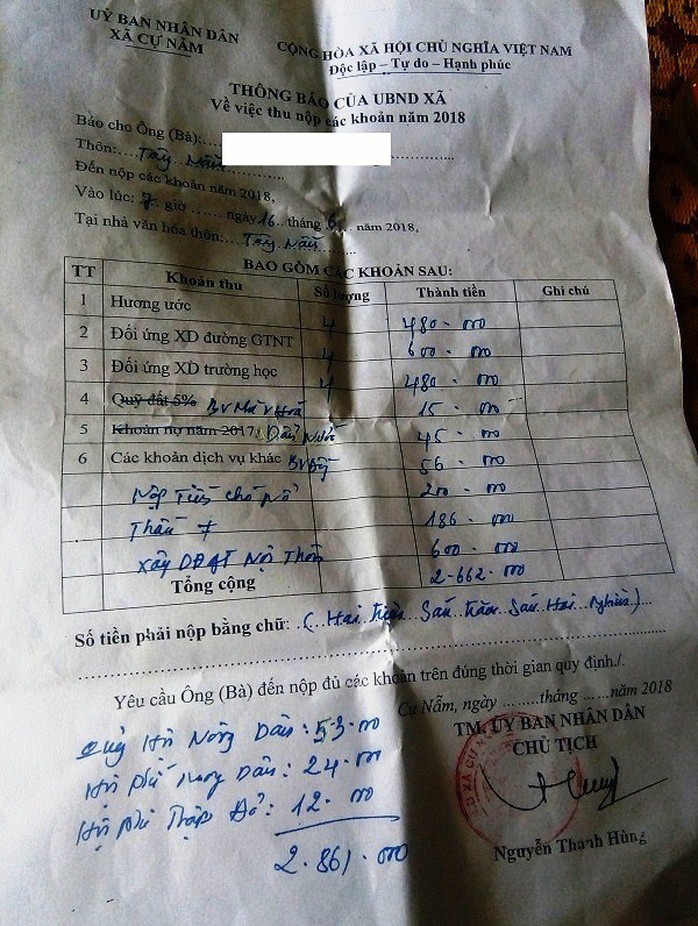 UỶ BAN NHÂN DÂN
XÃ CỰ NẪM
CỘNG HÒA XÃ HỘI CHỦ NGHĨA VIỆT NAM
Độc lập – Tự do – Hạnh phúc
THÔNG BÁO CỦA UBND XÃ
Về việc thu nộp các khoản năm 2018
Báo cho Ông (Bà):
Thôn: Tây Nẫm
Đến nộp các khoản năm 2018,
Vào lúc: 7 giờ ...... ngày 16 tháng 6 năm 2018,
Tại nhà văn hóa thôn: Tây Nẫm
BAO GỒM CÁC KHOẢN SAU:
TT Khoản thu Số lượng Thành tiền Ghi chú
1 Hương ước 4 480.000
2 Đối ứng XD đường GTNT 4 600.000
3 Đối ứng XD trường học 4 480.000
4 Quỹ đất 5% 15.000
5 Khoản nợ năm 2017 45.000
6 Các khoản dịch vụ khác 56.000
Nộp Tiền 200.000
186.000
Xây 600.000
Tổng cộng 2.662.000
Số tiền phải nộp bằng chữ: (Hai triệu Sáu trăm Sáu Hai Nghìn)
Yêu cầu Ông (Bà) đến nộp đủ các khoản trên đúng thời gian quy định./.
Cự Nẫm, ngày ........tháng ......năm 2018
TM. ỦY BAN NHÂN DÂN
CHỦ TỊCH
Quỹ Hội Nông Dân: 53.000
Hội phí Nông Dân: 24.000
Hội phí Thập Đỏ: 12.000
2.861.000
Nguyễn Thanh Hùng